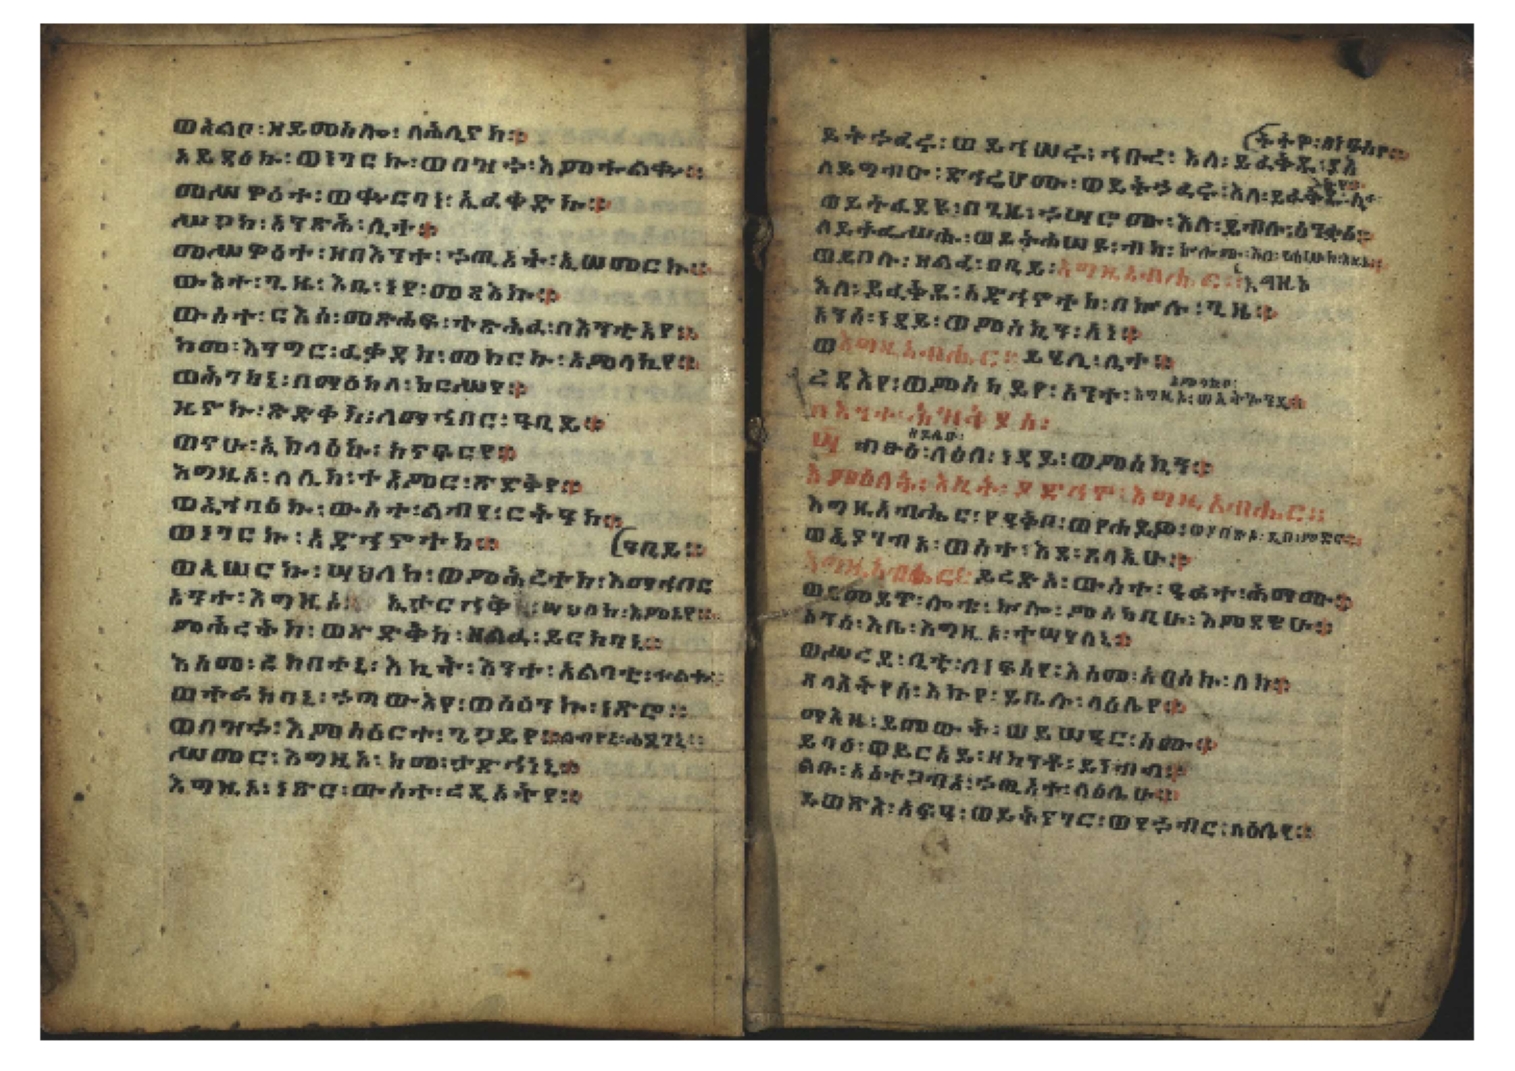 ወአልቦ፡ ዘይመስሎ፡ ለሕሊናከ።
አይዳዕኩ፡ ወነገርኩ፡ ወበዝኀ፡ እምኈልቍ።
መሥዋዕተ፡ ወቍርባነ፡ ኢፈቀድከ።
ሥጋከ፡ አንጽሕ፡ ሊተ።
መሥዋዕተ፡ ዘበእንተ፡ ኀጢአት፡ ኢሠመርከ።
ውእተ፡ ጊዜ፡ እቤ፡ ነየ፡ መጻእኩ።
ውስተ፡ ርእሰ፡ መጽሐፍ፡ ተጽሕፈ፡ በእንቲአየ።
ከመ፡ እንግር፡ ፈቃደከ፡ መከርኩ፡ አምላኪየ።
ወሕግከኒ፡ በማዕከለ፡ ከርሥየ።
ዜኖኩ፡ ጽድቀከ፡ ለማኅበር፡ ዓቢይ።
ወናሁ፡ ኢከላዕኩ፡ ከናፍርየ።
እግዚኦ፡ ለሊከ፡ ተአምር፡ ጽድቅየ።
ወኢኀባዕኩ፡ ውስተ፡ ልብየ፡ ርትዓከ።
ወነገርኩ፡ አድኅኖተከ። ዓቢይ።
ወኢሠወርኩ፡ ሣህለከ፡ ወምሕረተከ፡ እማኅበር
አንተ፡ እግዚኦ፡ ኢታርኅቅ፡ ሣህለከ፡ እምኔየ።
ምሕረትከ፡ ወጽድቅከ፡ ዘልፈ፡ ይርከባኒ።
እስመ፡ ረከበተኒ፡ እኪት፡ እንተ፡ አልባቲ፡ ኈልቈ።
ወተራከባኒ፡ ኀጣውእየ፡ ወስዕንኩ፡ ነጽሮ።
ወበዝኀ፡ እምስዕርተ፡ ጊጋይየ። ልብየኒ፡ ሐደገኒ።
ሥመር፡ እግዚኦ፡ ከመ፡ ታድኅነኒ።
እግዚኦ፡ ነጽር፡ ውስተ፡ ረዲኦትየ።
ለነፍስየ።
ይትኀፈሩ፡ ወይኅሠሩ፡ ኅቡረ፡ እለ፡ ይፈቅዱ፡
ለይግብኡ፡ ድኅሬሆሙ፡ ወይትኀፈሩ፡ እለ፡ ይፈቅዱ፡
ወይትፈደዩ፡ በጊዜ፡ ኀፍረሙ፡ እለ፡ ይብሉ፡ ዕንቋዕ።
ለይትፈሥሑ፡ ወይትሐሠዩ፡ ብከ፡ ኵሎሙ፡ እለ፡
ወይበሉ፡ ዘልፈ፡ ዐቢይ፡ እግዚአብሔር፡ እግዚኦ
እለ፡ ይፈቅዱ፡ አድኅኖተከ፡ በኵሉ፡ ጊዜ።
አንሰ፡ ነዳይ፡ ወምስኪን፡ አነ።
ወእግዚአብሔር፡ ይሄሊ፡ ሊተ።
ረዳእየ፡ ወምስካይየ፡ አንተ፡ አምላኪየ፡ ወኢትጐንዲ።
ብፁዕ፡ ዘይሌቡ፡ ላዕለ፡ ነዳይ፡ ወምስኪን።
እምዕለት፡ እኪት፡ ያድኅኖ፡ እግዚአብሔር።
እግዚአብሔር፡ የዓቅቦ፡ ወያሐይዎ፡
ወኢያገብኦ፡ ውስተ፡ እደ፡ ጸላኢሁ።
እግዚአብሔር፡ ይረድኦ፡ ውስተ፡ ዓራተ፡ ሕማሙ።
ወይመይጥ፡ ሎቱ፡ ኵሎ፡ ምስካቢሁ፡ እምደዌሁ።
አንሰ፡ እቤ፡ እግዚኦ፡ ተሣሃለኒ።
ለነፍስየ፡ እስመ፡ አበስኩ፡ ለከ።
ጸላእትየሰ፡ እኩየ፡ ይቤሉ፡ ላዕሌየ።
ማእዜ፡ ይመውት፡ ወይሠዓር፡ ስሙ።
ይባዕ፡ ወይርአይ፡ ዘከንቶ፡ ይነብብ።
ልቡ፡ አስተጋብአ፡ ኀጢአተ፡ ላዕሌሁ።
ይወጽእ፡ አፍዓ፡ ወይትናገር፡ ወየኀብር፡ ላዕሌየ።